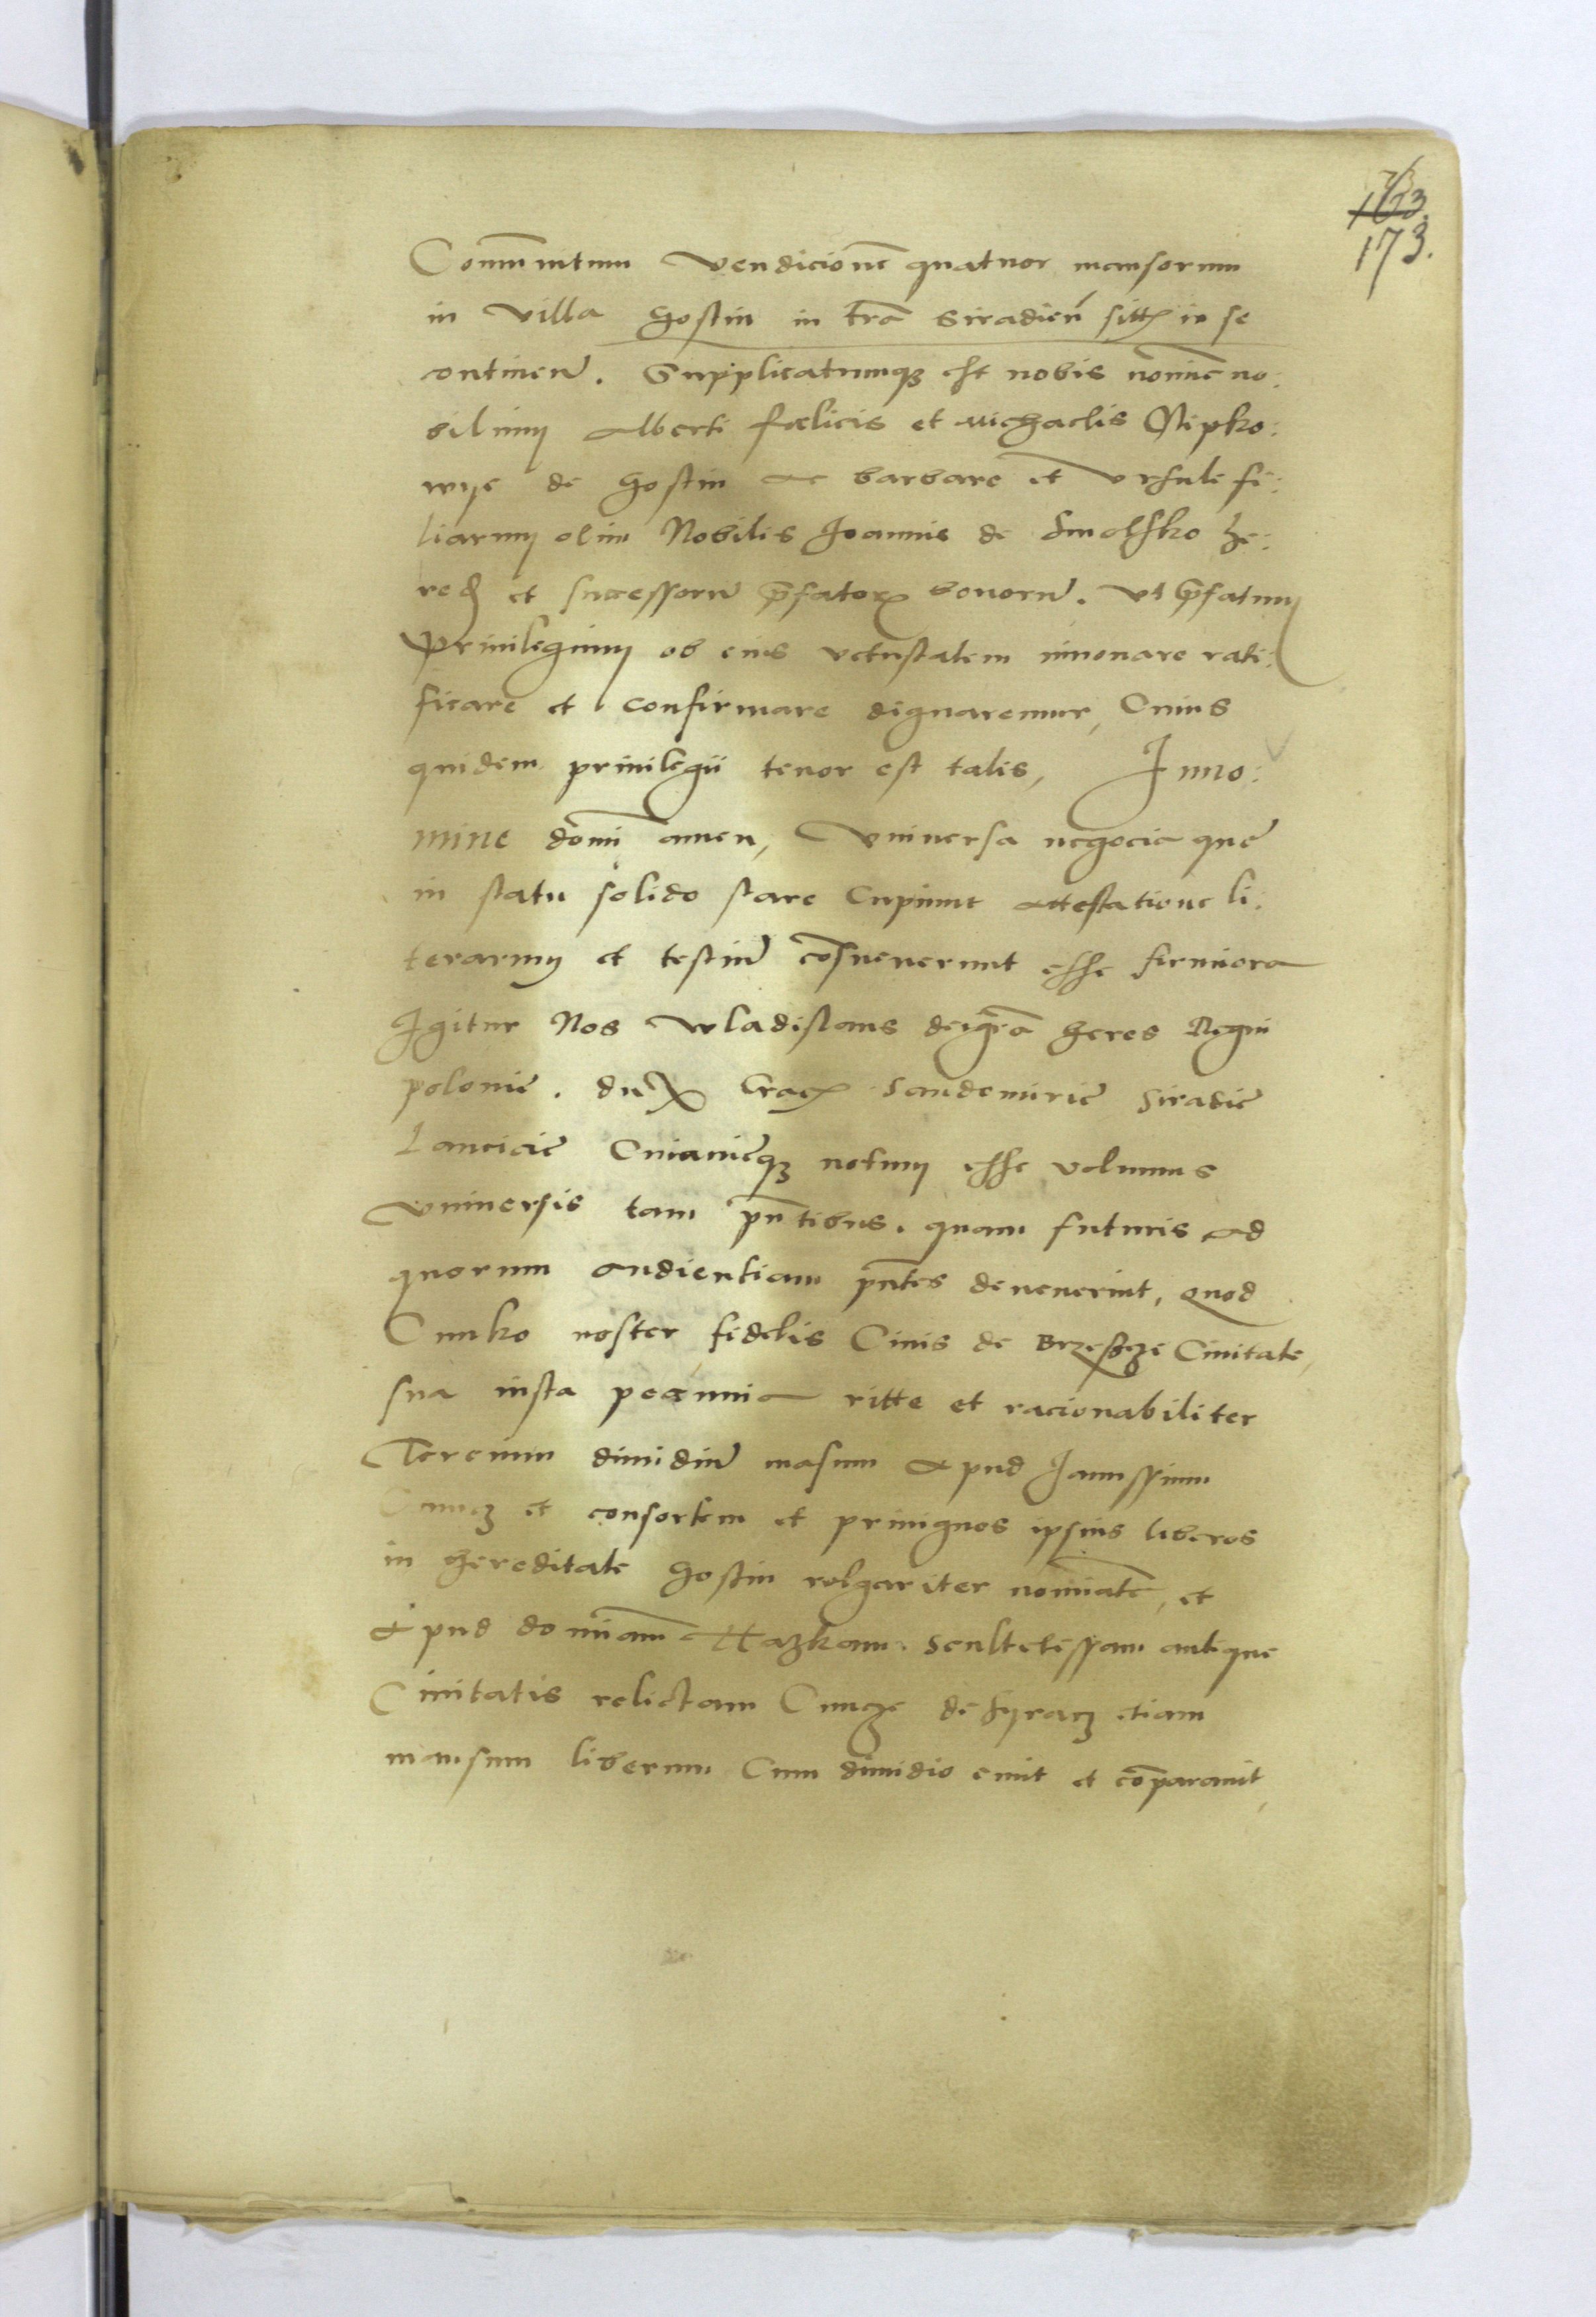 163.
173.
Communitum vendicionē quatuor mansorum
in villa Gostin in trā Siradień sitt in se
continen̄. Supplicatumq3 est nobis nomine no:
bilium Alberti foelicis et Michaelis
de Gostin ac barbare et Vrsule fi:
liarum olim Nobilis Joannis de Smolsko he:
red et successorū p̄fator bonorū. vt p̄fatum
Priuilegium ob eius vetustatem innouare rati:
ficare et confirmare dignaremur, Cuius
quidem priuilegii tenor est talis, Inno:
mine domī amen, Vniuersa negocia que
in statu solido stare cupiunt attestatione li:
terarum et testiū cōsueuerunt esse firmiora
Igitur Nos Wladislaus dei grā heres Regni
polonie. dux Crac Sandomirie Siradie
Lancicie Cuiauieq3 notum esse volumus
vniuersis tam pn̄tibus. quam futuris ad
quorum audientiam pn̄tes deuenerint, quod
Cunko noster fidelis Ciuis de Ciuitate,
sua iusta pecunia ritte et racionabiliter
Tercium dimidiū masum apud
et consortem et priuignos ipsius liberos
in hereditate Gostin volgariter nominate, et
apud dominam Hazkam. Scultetissam antique
Ciuitatis relictam Cuncze de Syracz etiam
mansum liberum Cum dimidio emit et cōparauit,